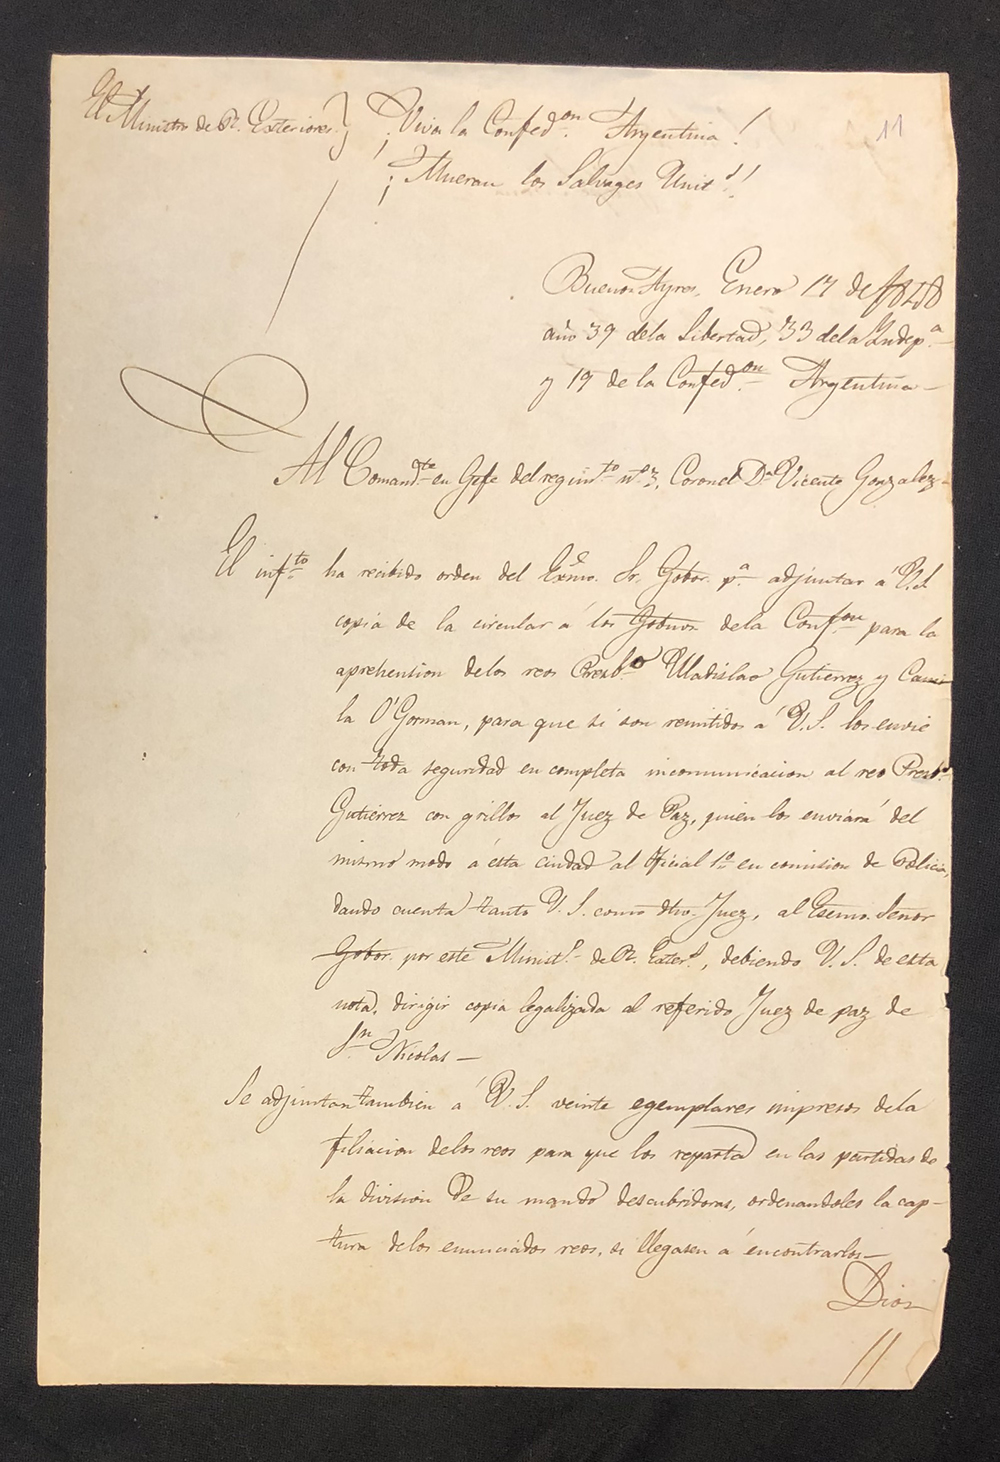 11
El Ministro de R. Exteriores } ¡Viva la Confed.on Argentina!
¡Mueran los Salvages Unit.s!
Buenos Ayres, Enero 17 de 1848
año 39 de la Libertad, 33 de la Indep.a
y 19 de la Confed.on Argentina—
Al Comand.te en Gefe del regim.to n.o 3, Coronel D.n Vicente Gonzalez—
El inf.to ha recibido orden del Exmo. Sr. Gobor. p.a adjuntar á V.S.
copia de la circular á los Gobnos. dela Conf.on para la
aprehention delos reos Presb.o Uladislao Gutierrez y Cami
la O'Gorman, para que si son remitidos á V.S. los envie
con toda seguridad en completa incomunicacion al reo Presb.o
Gutierrez con grillos al Juez de Paz, quien los enviará del
mismo modo á esta ciudad al Oficial 1.o en comision de Policia,
dando cuenta tanto V.S. como dho. Juez, al Exmo. Señor
Gobor. por este Minist.o de R. Exter.s, debiendo V.S. de esta
nota, dirigir copia legalizada al referido Juez de paz de
S.n Nicolas—
Se adjuntan tambien á V.S. veinte egemplares impresos dela
filiacion delos reos para que los reparta en las partidas de
la division de su mando descubridoras, ordenandoles la cap-
tura delos enunciados reos, si llegasen á encontrarlos—
Dios
//